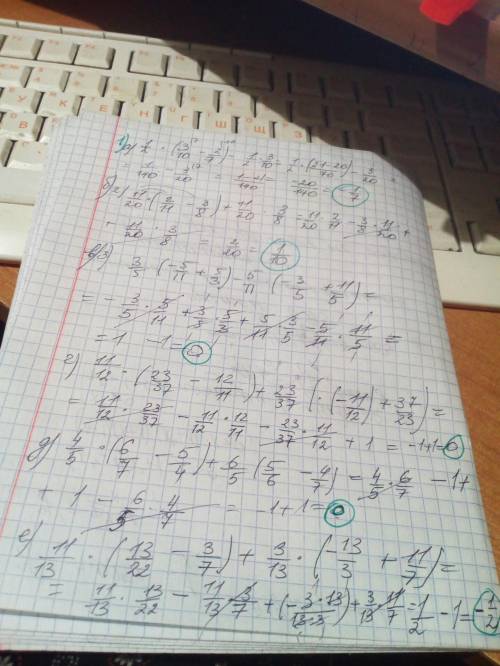 1) а) 1/2 · (3/10 - 2/7) - 1/2 · 3/10 = 1/2 · (21-20)/70 - 3/20 =
= 1/140 - 3/20 = (1-21)/140 = -20/140 = -1/7
б) 2) 11/20 · (2/11 - 3/8) + 11/20 · 3/8 = 11/20 · 2/11 - 3/8 · 11/20 +
+ 11/20 · 3/8 = 2/20 = 1/10
в) 3) 3/5 · (-5/11 + 5/3) - 5/11 · (-3/5 + 11/5) =
= - 3/5 · 5/11 + 3/5 · 5/3 + 5/11 · 3/5 - 5/11 · 11/5 =
= 1 - 1 = 0
г) 11/12 · (23/37 - 12/11) + 23/37 (·(-11/12) + 37/23) =
= 11/12 · 23/37 - 11/12 · 12/11 - 23/37 · 11/12 + 1 = -1+1=0
д) 4/5 · (6/7 - 5/4) + 6/5 (5/6 - 4/7) = 4/5 · 6/7 - 1 +
+ 1 - 6/5 · 4/7 = 1+1=0
е) 11/13 · (13/22 - 3/7) + 3/13 · (-13/3 + 11/7) =
= 11/13 · 13/22 - 11/13 · 3/7 + (-3·13/13·3) + 3/13 · 11/7 = 1/2 - 1 = -1/2